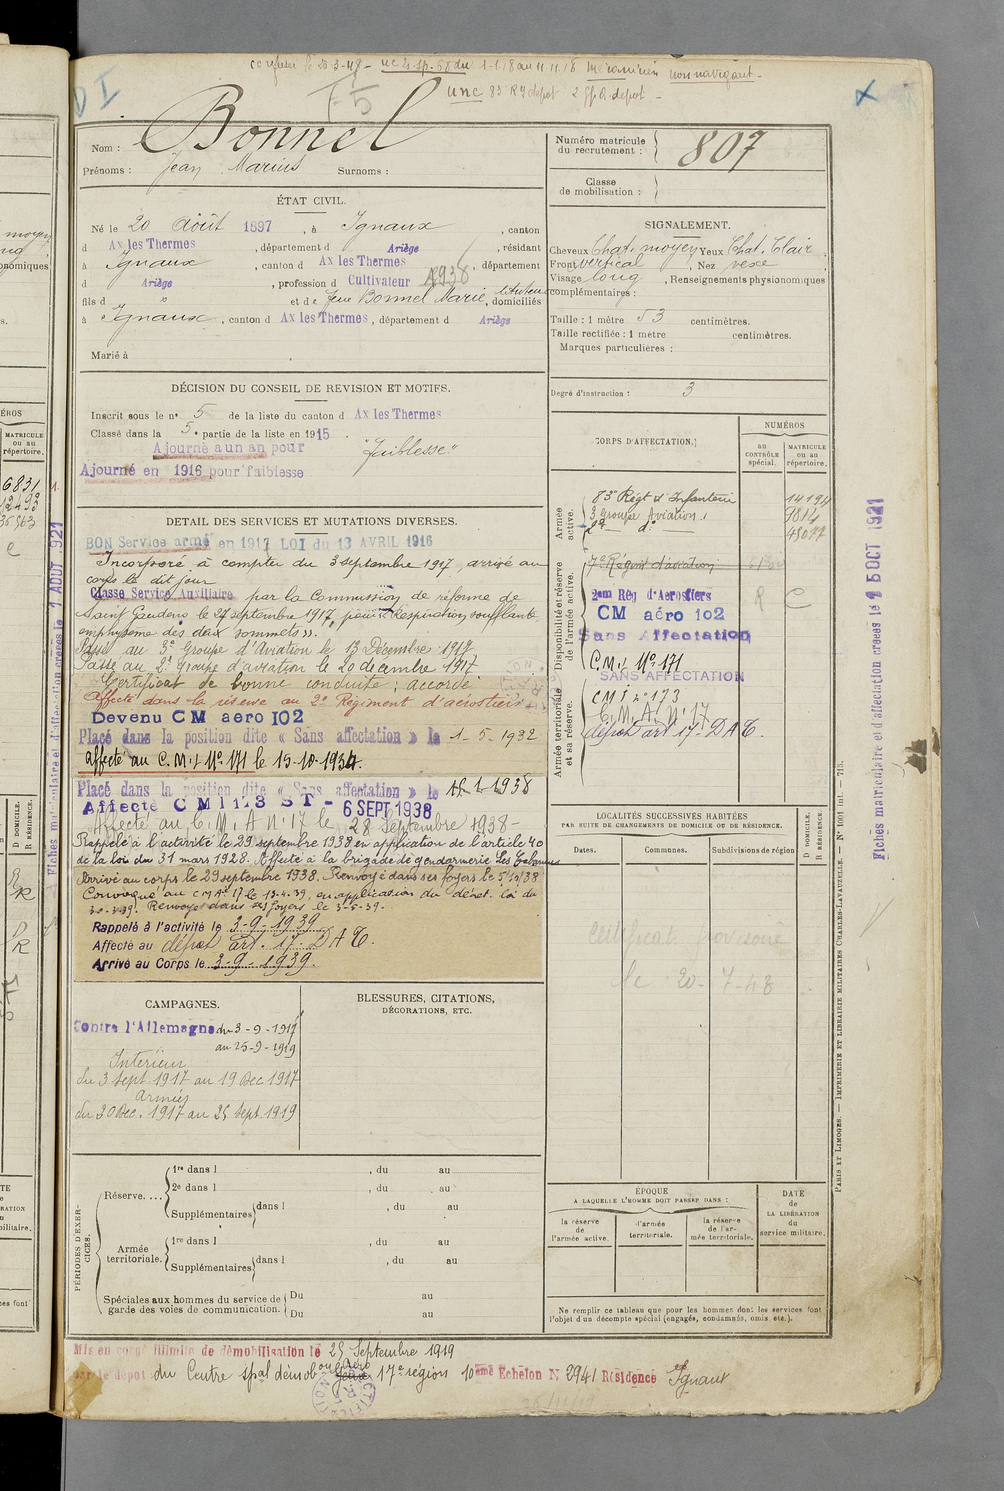 le 20-3-48 - 1-1-18 au 11.11.18 mécanicien non navigant -
une 83 RI depot 2 gp a. depot -
D I
F5
Nom : Bonnel
Prénoms : Jean Marius Surnoms :
Numéro matricule du recrutement : 807
Classe de mobilisation :
ÉTAT CIVIL.
Né le 20 Août 1897, à Ignaux, canton
d Ax les Thermes, département d Ariège, résidant
à Ignaux, canton d Ax les Thermes, département
d Ariège, profession d Cultivateur 1938
fils d " et de Jne Bonnel Marie, domiciliés
à Ignaux, canton d Ax les Thermes, département d Ariège
Marié à
SIGNALEMENT.
Cheveux Chat. moyen Yeux Chat. Clair
Front vertical, Nez vexe
Visage long, Renseignements physionomiques
complémentaires :
Taille : 1 mètre 53 centimètres.
Taille rectifiée : 1 mètre centimètres.
Marques particulières :
Degré d'instruction : 3
DÉCISION DU CONSEIL DE REVISION ET MOTIFS.
Inscrit sous le n° 5 de la liste du canton d Ax les Thermes
Classé dans la 5e partie de la liste en 1915
Ajourné a un an pour "faiblesse"
Ajourné en 1916 pour faiblesse
DÉTAIL DES SERVICES ET MUTATIONS DIVERSES.
BON Service armé en 1917 LOI du 13 AVRIL 1916
Incorporé à compter du 3 septembre 1917, arrivé au
corps le dit jour
Classé Service Auxiliaire par la Commission de réforme de
Saint Gaudens le 27 septembre 1917, pour "Respiration soufflante
emphysème des deux sommets".
Passé au 3e Groupe d'Aviation le 13 Décembre 1917
Passé au 2e Groupe d'aviation le 20 décembre 1917
Certificat de bonne conduite : accordé
Affecté dans la réserve au 2e Régiment d'aérostiers
Devenu CM aero 102
Placé dans la position dite « Sans affectation » le 1-5-1932
affecté au C.M.I N° 171 le 15-10-1934.
Placé dans la position dite « Sans affectation » le 1-1938
Affecté CMI 173 ST - 6 SEPT 1938
Affecté au C.M.A N°17 le 28 Septembre 1938 -
Rappelé à l'activité le 29 septembre 1938 en application de l'article 40
de la loi du 31 mars 1928. Affecté à la brigade de gendarmerie Les Cabannes
Arrivé au corps le 29 septembre 1938. Renvoyé dans ses foyers le 5/10/38
Convoqué au CMA 17 le 13.4.39, en application du décret. loi du
Renvoyé dans ses foyers le 3-5-39.
Rappelé à l'activité le 3-9-1939
Affecté au dépôt art. 17. DAT.
Arrivé au Corps le 3-9-1939.
CORPS D'AFFECTATION.
NUMÉROS
au CONTRÔLE spécial.
MATRICULE ou au répertoire.
Armée active.
83e Régt d'Infanterie 14194
3e Groupe Aviation 9814
2e do 45077
Disponibilité et réserve de l'armée active.
7e Régiment d'aviation
2em Rég d'Aerostiers R C
CM aéro 102
Sans Affectation
C.M.I N° 171
SANS AFFECTATION
Armée territoriale et sa réserve.
CMI n° 173
C.M.A. N° 17
dépôt art 17. DAT.
LOCALITÉS SUCCESSIVES HABITÉES
PAR SUITE DE CHANGEMENTS DE DOMICILE OU DE RÉSIDENCE.
Dates. Communes. Subdivisions de région
D DOMICILE. R RÉSIDENCE.
certificat provisoire
le 20-7-48
CAMPAGNES.
Contre l'Allemagne du 3-9-1917
au 25-9-1919
Intérieur
du 3 Sept. 1917 au 19 Dec 1917
armées
du 20 Dec. 1917 au 25 Sept. 1919
BLESSURES, CITATIONS,
DÉCORATIONS, ETC.
PÉRIODES D'EXERCICES.
Réserve....
1re dans l , du au
2e dans l , du au
Supplémentaires dans l , du au
Armée territoriale.
1re dans l , du au
Supplémentaires dans l , du au
Spéciales aux hommes du service de garde des voies de communication.
Du au
Du au
ÉPOQUE
A LAQUELLE L'HOMME DOIT PASSER DANS :
la réserve de l'armée active.
l'armée territoriale.
la réserve de l'armée territoriale.
DATE DE LA LIBÉRATION du service militaire.
Ne remplir ce tableau que pour les hommes dont les services font
l'objet d'un décompte spécial (engagés, condamnés, omis, etc.).
Mis en congé illimité de démobilisation le 25 Septembre 1919
par le dépôt du Centre spal démob 17e région 10ème Echelon N° 2941 Résidence Ignaux
PARIS ET LIMOGES. — IMPRIMERIE ET LIBRAIRIE MILITAIRES CHARLES-LAVAUZELLE. — N° 1001 int. — 713.
Fiches matriculaire et d'affectation creees le 15 OCT 1921
Fiches matriculaire et d'affectation creees le 1 AOUT 921